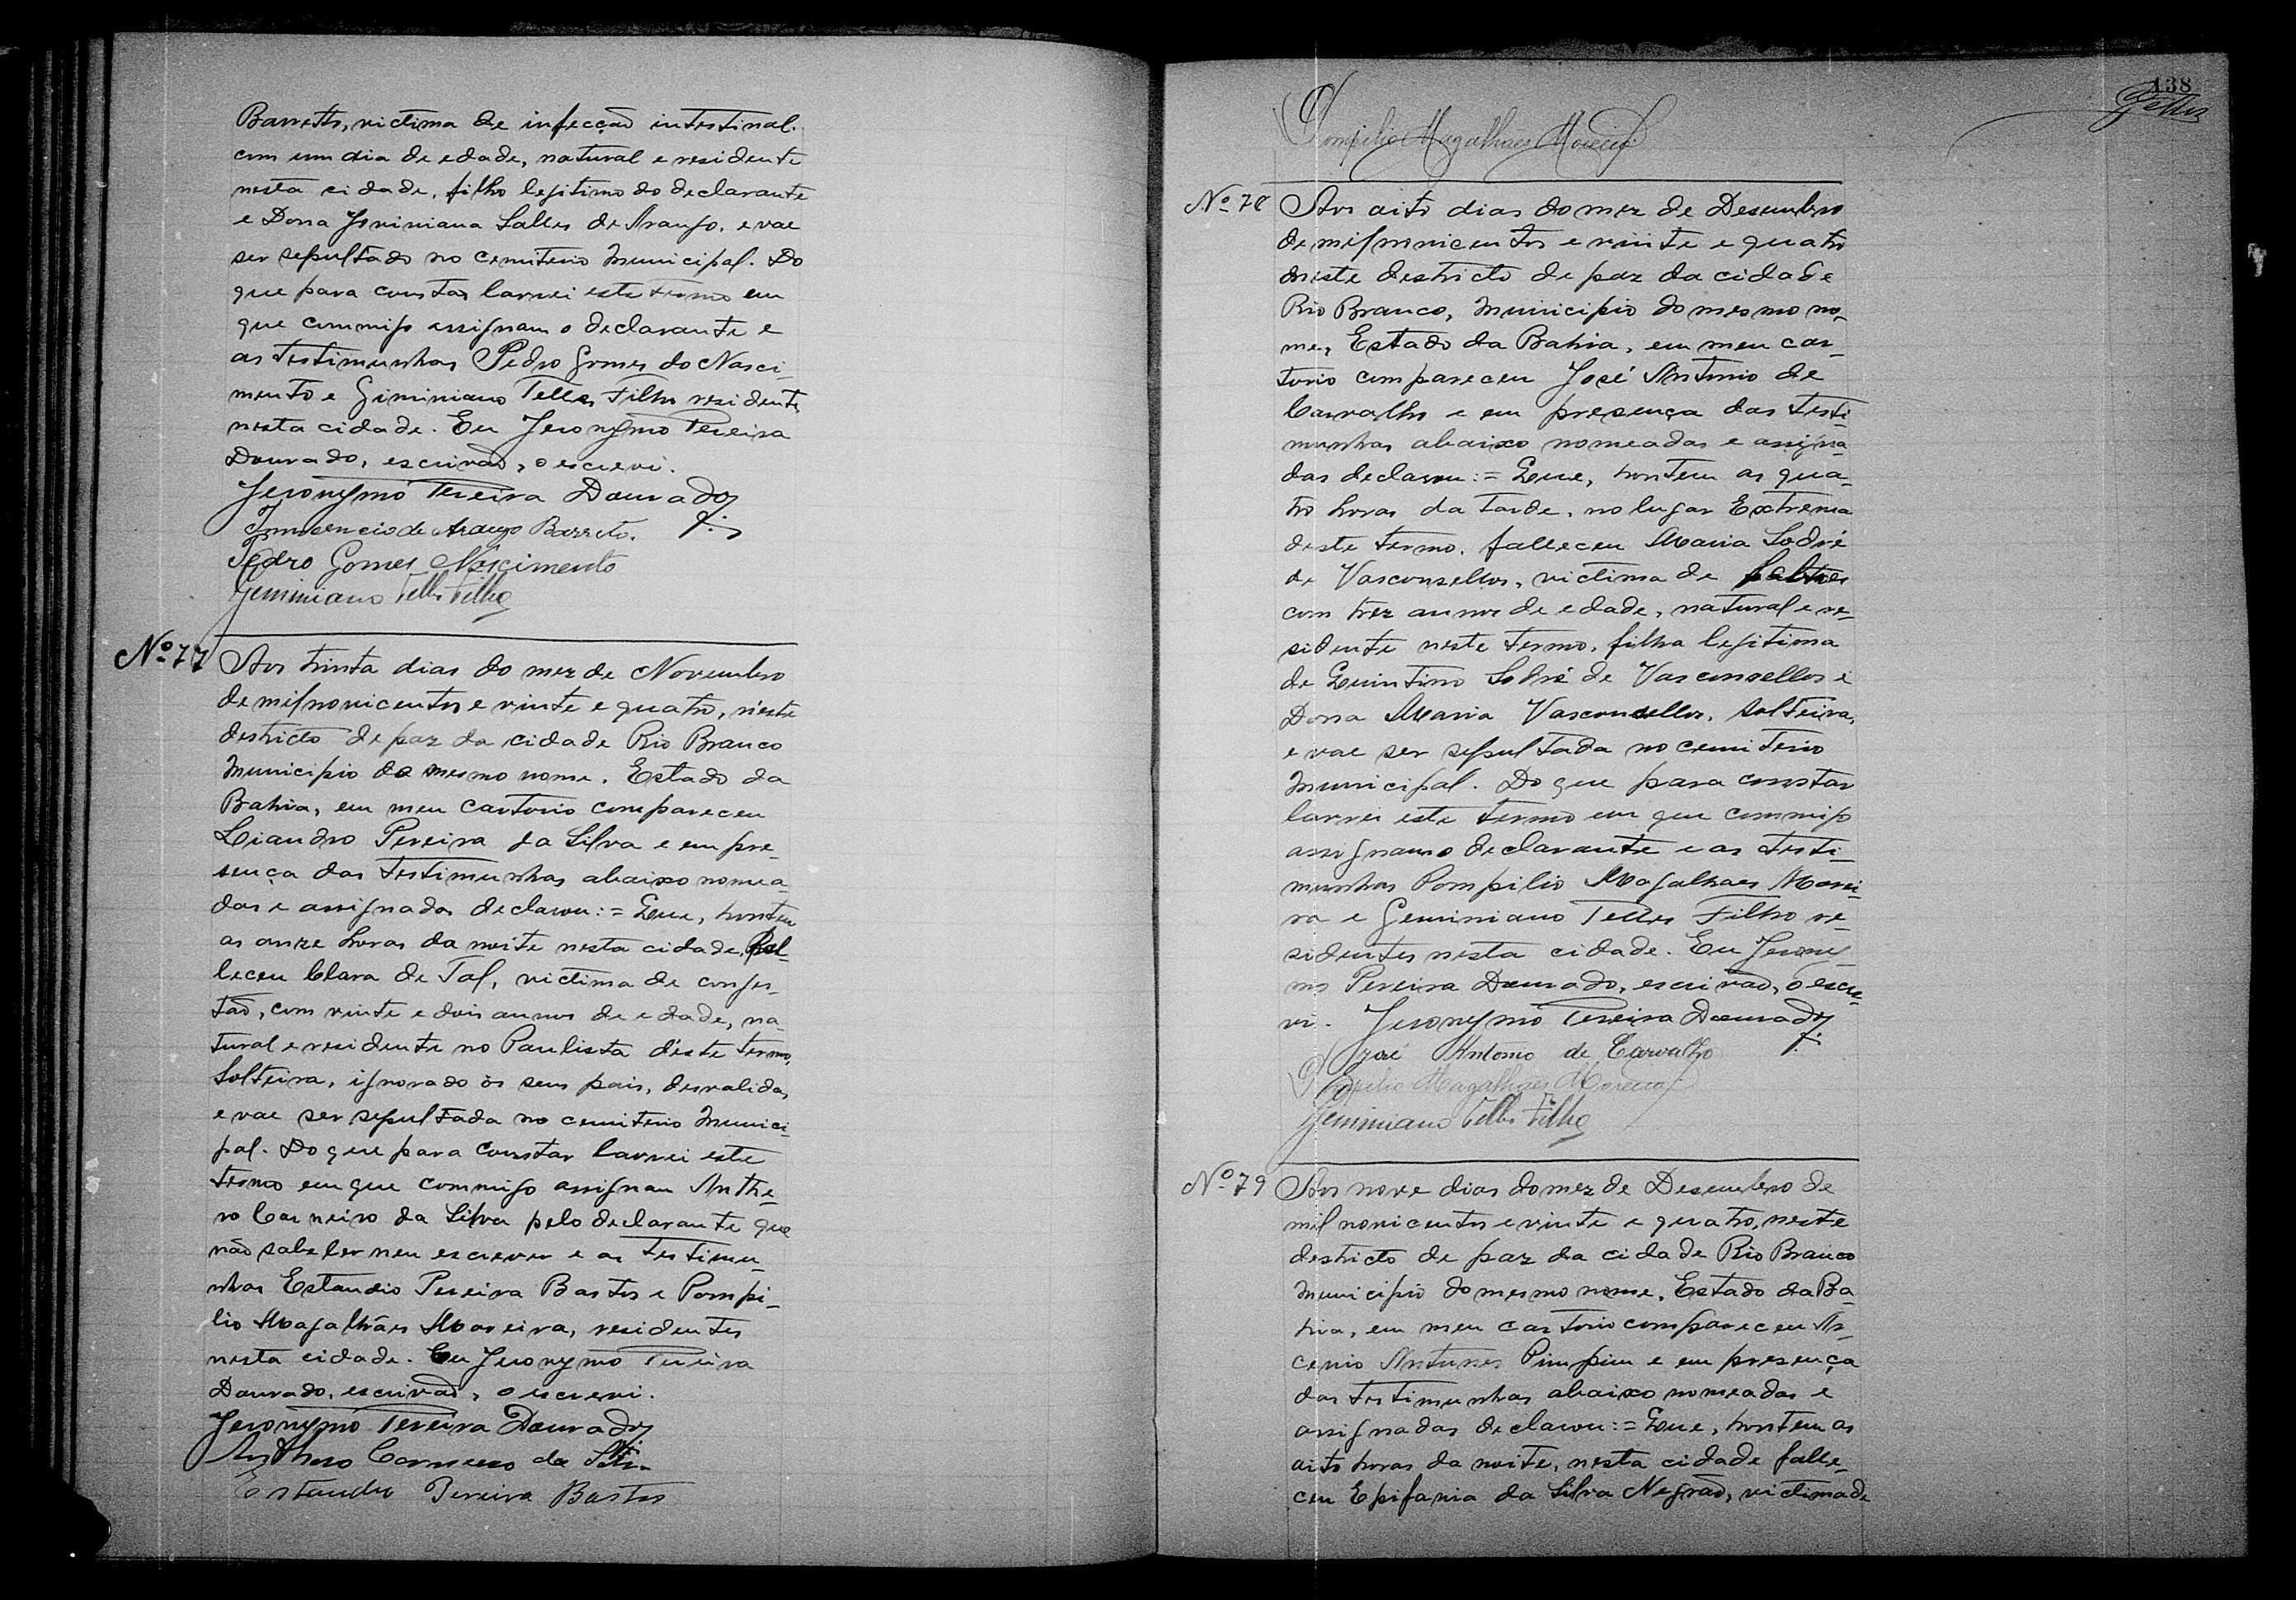 Barretto, victima de infecção intestinal.
com um dia de edade, natural e residente
nesta cidade, filho legitimo do declarante
e Dona Salles de Araujo, e vae
ser sepultado no cemiterio Municipal. Do
que para constar lavrei este termo em
que commigo assignam o declarante e
as testimunhas Pedro Gomes do Nasci-
mento e Giminiano Telles Filho residentes
nesta cidade. Eu Jeronymo Pereira
Dourado, escrivão, o escrevi.
Jeronymo Pereira Dourado
Innosencio de Araujo Barreto.
Pedro Gomes Nascimento
Geminiano Telles Filho
Nº 77 Aos trinta dias do mez de Novembro
de mil novicentos e vinte e quatro, n'este
destricto de paz da cidade Rio Branco
Municipio do mesmo nome, Estado da
Bahia, em meu cartorio compareceu
Liandro Pereira da Silva e em pre-
sença das testimunhas abaixo nomea-
das e assignadas declarou:= Que, hontem
as onze horas da noite nesta cidade, fal-
leceu Clara de Tal, victima de conges-
tão, com vinte e dois annos de edade, na-
tural e residente no Paulista d'este termo,
Solteira, ignorado os seus pais, desvalida,
e vae ser sepultada no cemiterio Munici-
pal. Do que para constar lavrei este
termo em que commigo assignam Anthe-
ro Carneiro da Silva pelo declarante que
não sabe ler nem escrever e as testimu-
nhas Estandio Pereira Bastos e Pompi-
lio Magalhães Moreira, residentes
nesta cidade. Eu Jeronymo Pereira
Dourado, escrivão, o escrevi.
Jeronymo Pereira Dourado
Anthero Carneiro da Silva
Pereira Bastos
138
Telles
Pompilio Magalhães Moreira
Nº 78 Aos oito dias do mez de Desembro
de mil novicentos e vinte e quatro
neste destricto de paz da cidade
Rio Branco, Municipio do mesmo no-
me, Estado da Bahia, em meu car-
torio compareceu José Antonio de
Carvalho e em presença das testi-
munhas abaixo nomeadas e assigna-
das declarou:= Que, hontem as qua-
tro horas da tarde, no lugar Extrema
deste termo, falleceu Maria Sodré
de Vasconsellos, victima de
com trez annos de edade, natural e re-
sidente neste termo, filha legitima
de Quintino Sodré de Vasconsellos e
Dona Maria Vasconsellos, solteira,
e vae ser sepultada no cemiterio
Municipal. Do que para constar
lavrei este termo em que commigo
assignam o declarante e as testi-
munhas Pompilio Magalhaes Morei-
ra e Geminiano Telles Filho re-
sidentes nesta cidade. Eu Jerony-
mo Pereira Dourado, escrivão, o escre-
vi. Jeronymo Pereira Dourado
José Antonio de Carvalho
Pompilio Magalhães Moreira
Geminiano Telles Filho
Nº 79 Aos nove dias do mez de Desembro de
mil novicentos e vinte e quatro, neste
destricto de paz da cidade Rio Branco
Municipio do mesmo nome, Estado da Ba-
hia, em meu cartorio compareceu Ar-
cenio Antunes Pimpim e em presença
das testimunhas abaixo nomeadas e
assignadas declarou:= Que, hontem as
oito horas da noite, nesta cidade falle-
ceu Epifania da Silva Negrão, victima de